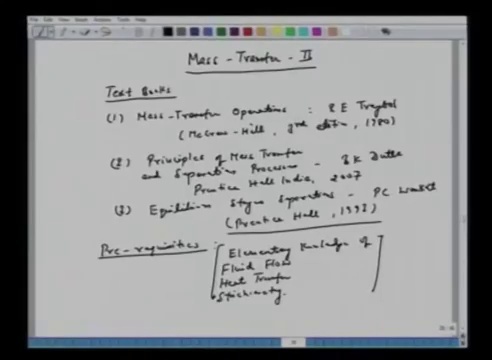 Mass-Transfer-II
Text Books
(1) Mass-Transfer Operations : R E Treybal
(McGraw-Hill, 3rd edition, 1980)
(2) Principles of Mass Transfer
and Separation Processes - B K Dutta
Prentice Hall India, 2007
(3) Equilibrium Stages Separations - PC Wankat
(Prentice Hall, 1993)
Pre-requisities : Elementary Knowledge of
Fluid Flow
Heat Transfer
Stichiometry.